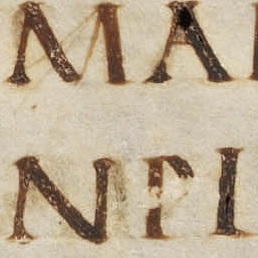 MA
NPI